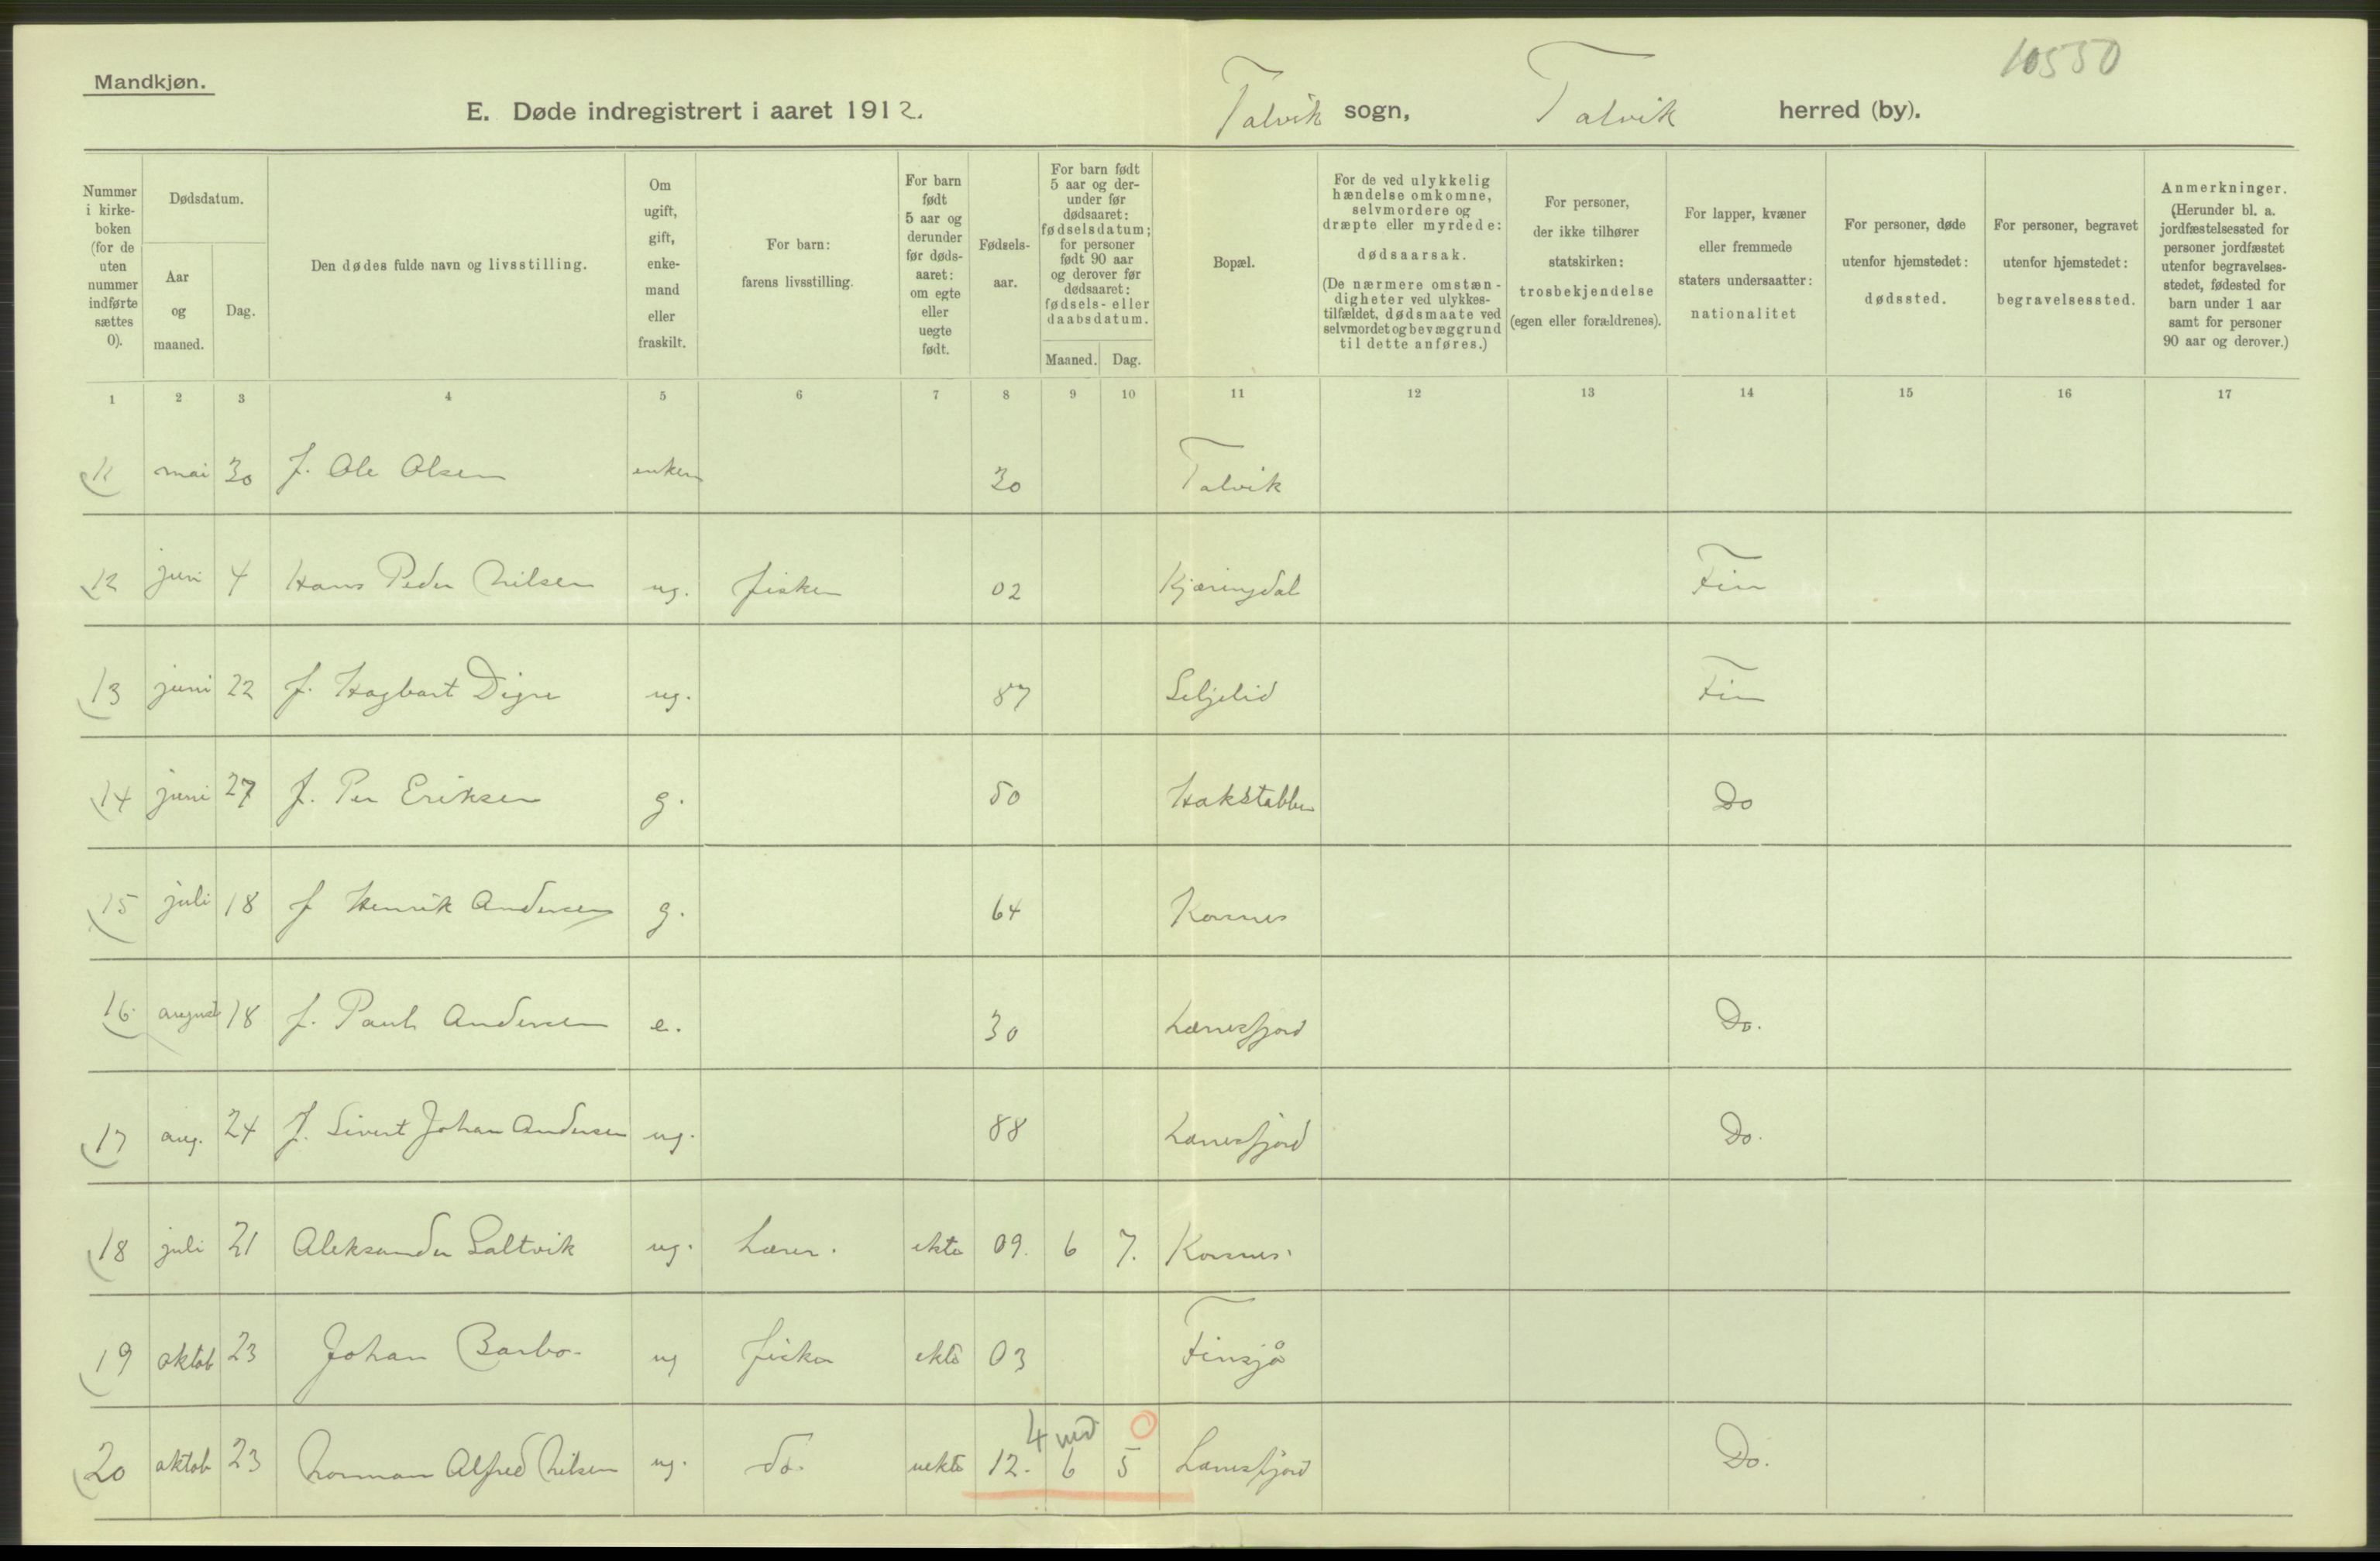 10550
Mandkjøn.
E. Døde indregistrert i aaret 1912. Talvik sogn, Talvik herred (by).
Nummer i kirke-boken (for de uten nummer indførte sættes 0).
Dødsdatum.
Aar og maaned.
Dag.
Den dødes fulde navn og livsstilling.
Om ugift, gift, enke-mand eller fraskilt.
For barn: farens livsstilling.
For barn født 5 aar og derunder før døds-aaret: om egte eller uegte født.
Fødsels-aar.
For barn født 5 aar og der-under før dødsaaret: fødselsdatum; for personer født 90 aar og derover før dødsaaret: fødsels- eller daabsdatum.
Maaned. Dag.
Bopæl.
For de ved ulykkelig hændelse omkomne, selvmordere og dræpte eller myrdede: dødsaarsak. (De nærmere omstæn-digheter ved ulykkes-tilfældet, dødsmaate ved selvmordet og bevæggrund til dette anføres.)
For personer, der ikke tilhører statskirken: trosbekjendelse (egen eller forældrenes).
For lapper, kvæner eller fremmede staters undersaatter: nationalitet
For personer, døde utenfor hjemstedet: dødssted.
For personer, begravet utenfor hjemstedet: begravelsessted.
Anmerkninger. (Herunder bl. a. jordfæstelsessted for personer jordfæstet utenfor begravelses-stedet, fødested for barn under 1 aar samt for personer 90 aar og derover.)
1 2 3 4 5 6 7 8 9 10 11 12 13 14 15 16 17
11 mai 30 f. Ole Olsen enkem 30 Talvik
12 juni 4 Hans Peder Nilsen ug. fisker 02 Kjæringdal Fin
13 juni 22 f. Hagbart Digre ug. 87 Seljelid Fin
14 juni 27 f. Per Eriksen g. 50 Hakstabben Do
15 juli 18 f Henrik Andersen g. 64 Korsnes
16. august 18 f. Paul Andersen e. 30 Langfjord Do.
17 aug. 24 f. Sivert Johan Andersen ug. 88 Langfjord Do.
18 juli 21 Aleksander Saltvik ug. Lærer. ekte 09. 6 7. Korsnes.
19 oktob 23 Johan Barbo- ug fisker ekte 03 Finsjå
4 md 0
20 oktob 23 Norman Alfred Nilsen ug. do. uekte 12. 6 5 Langfjord Do.